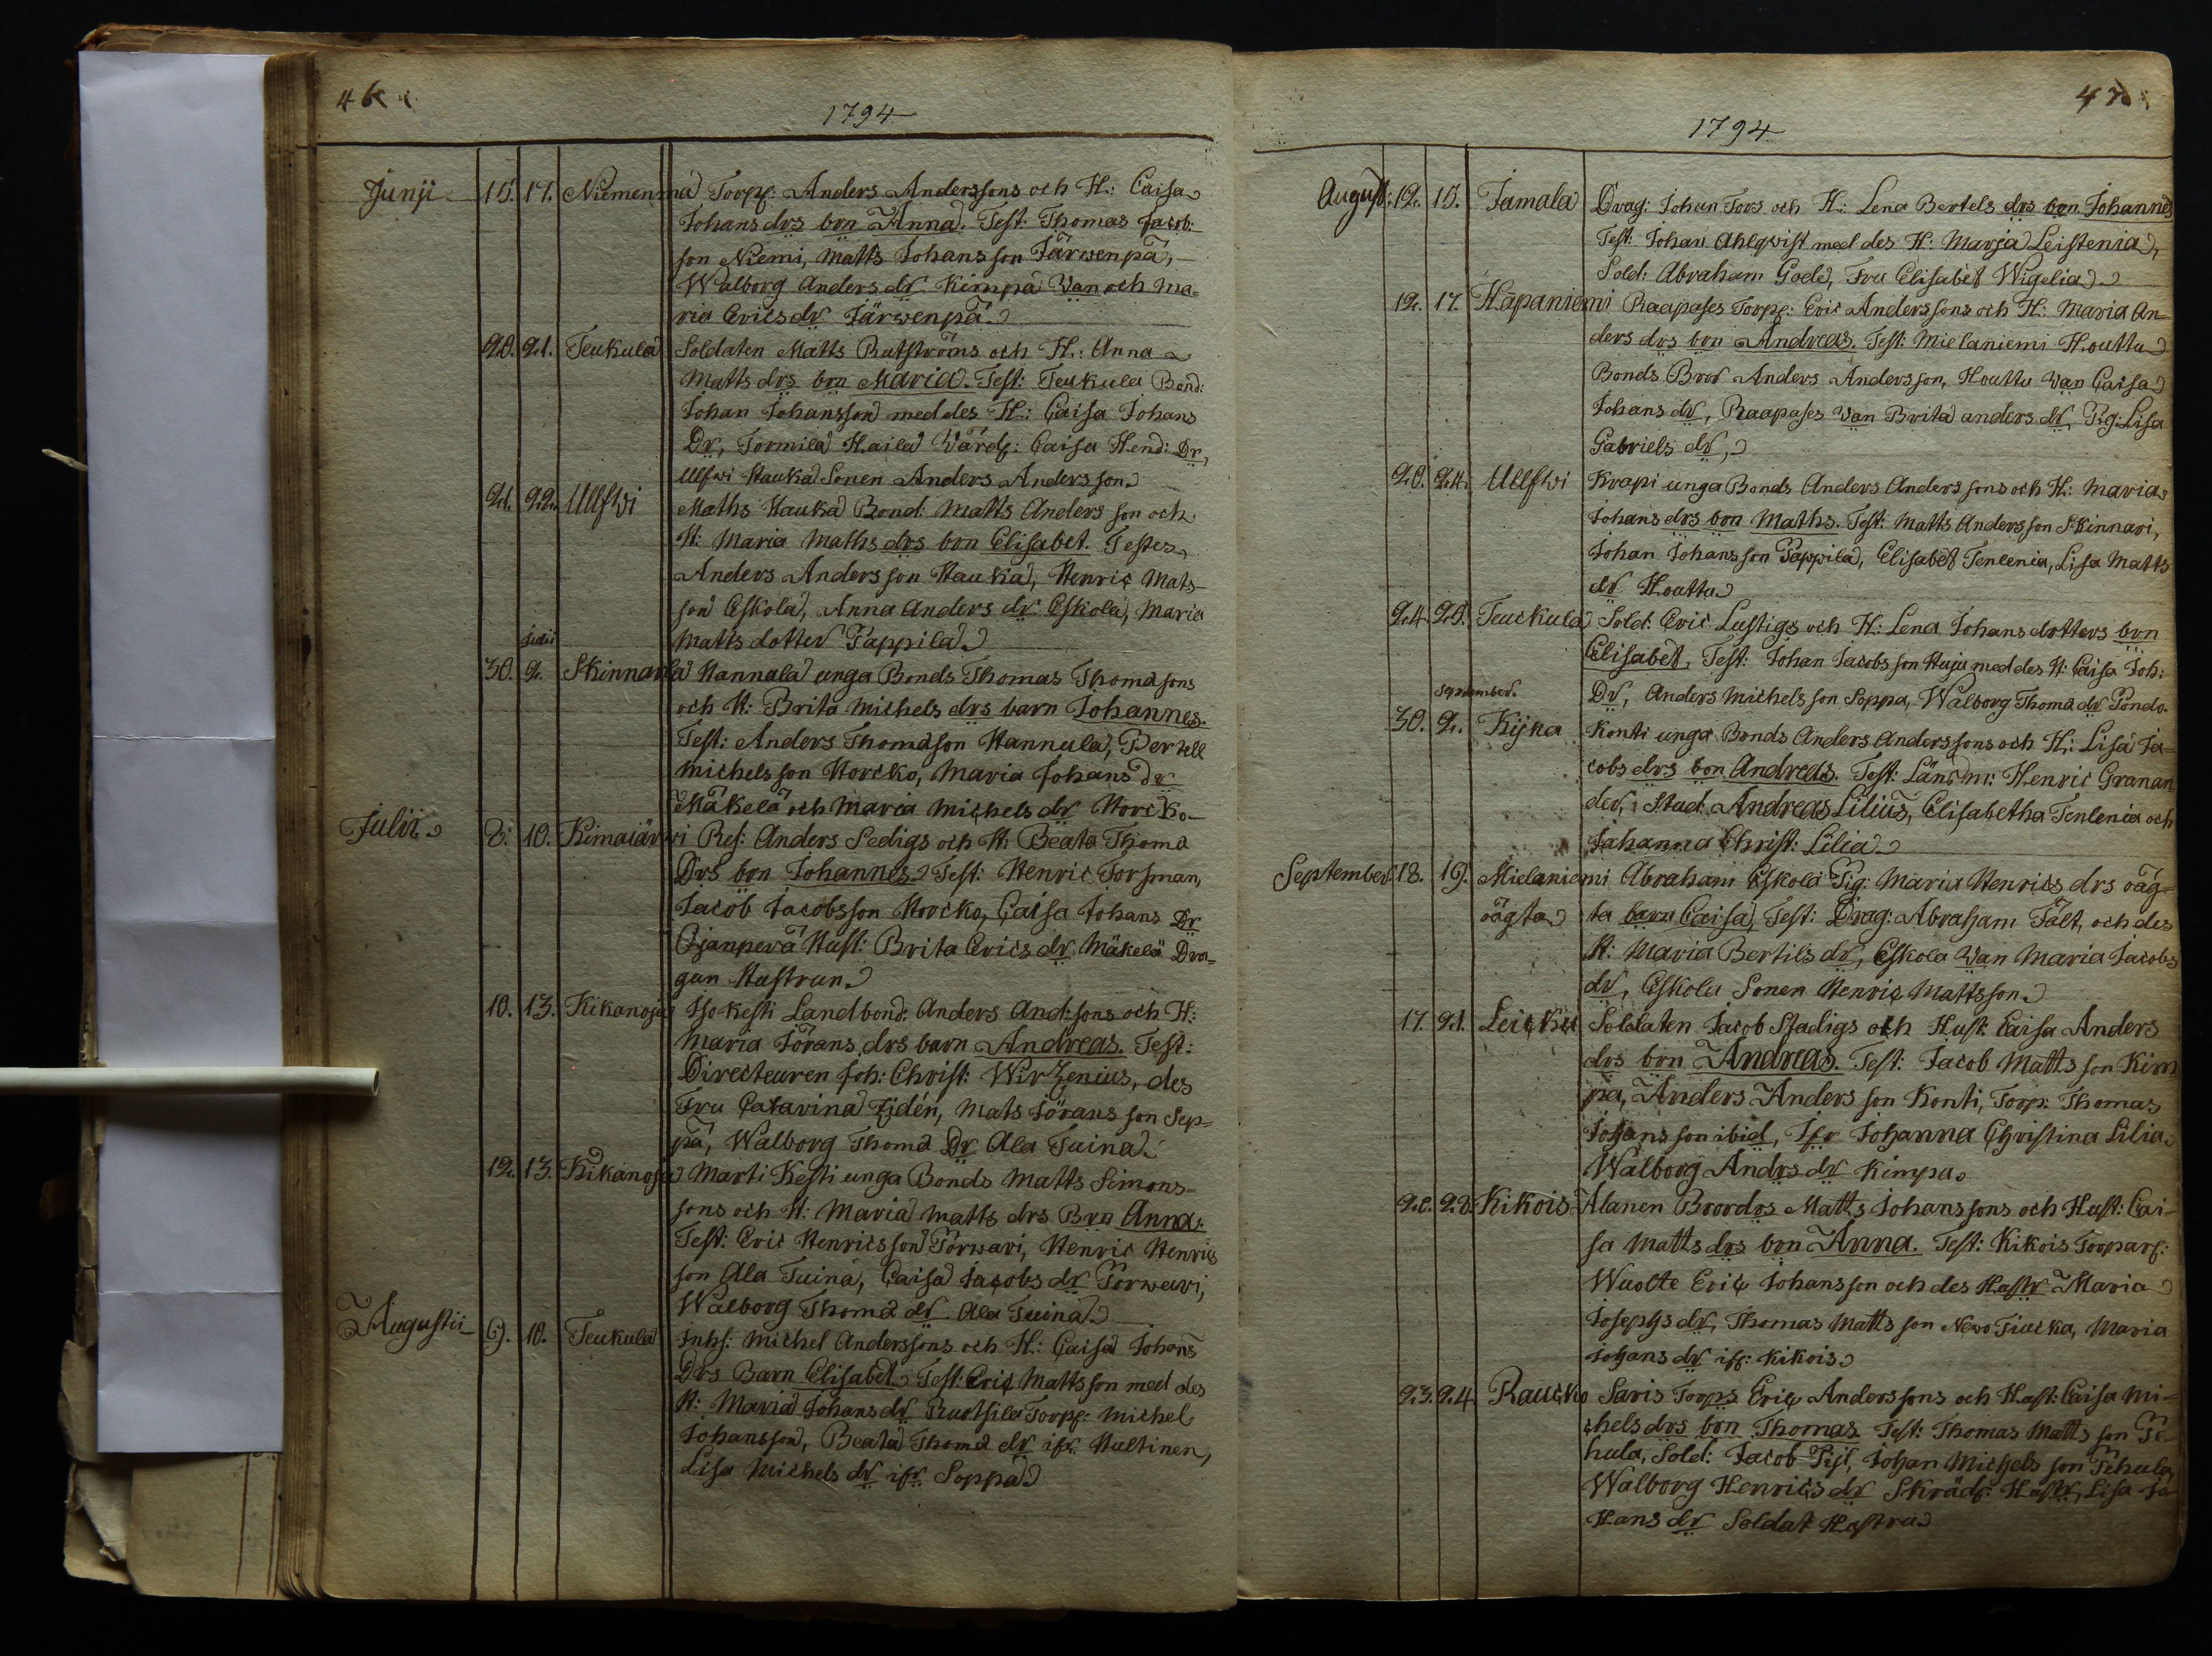 46
1794
Junji 15. 17. Niemenmä Torpf: Anders Anderssons och H: Caisa
Johans drs brn Anna. Test: Thomas Jacob:
son Niemi, Matts Johansson Järwenpä,
Walborg Anders dr Kimpa Wan och Ma-
ria Erics dr Järwenpä
20. 21. Teukula Soldaten Matts Ratströms och H: Anna
Matts drs brn Maria. Test: Teukula Bond:
Johan Johansson med des H: Caisa Johans
Dr, Tormila Haila Wärdf: Caisa Hend: Dr,
Ulfwi Hauka Sonen Anders Andersson
21. 22. Ullfwi Maths Hauka Bond: Matts Anders son och
H: Maria Maths drs brn Elisabet. Testes
Anders Andersson Hauka, Henric Mats-
son Eskola, Anna Anders dr Eskola, Maria
Matts dotter Pappila
Julii
30. 2. Skinnarla Hannula unga Bonds Thomas Thomasons
och H: Brita Michels drs barn Johannes.
Test: Anders Thomason Hannula, Bertell
Michelsson Horcko, Maria Johans dr
Mäkelä och Maria Michels dr Horcko
Julii 8. 10. Kimaiärwi Res: Anders Sedigs och H: Beata Thoma
Drs brn Johannes. Test: Henric Forsman,
Jacob Jacobsson Horcko, Caisa Johans Dr
Ojanperä Hust: Brita Erics dr Mäkelä Dra-
gun Hustrun
10. 13. Kikanoja Iso Kesti Landbond: Anders And:sons och H:
Maria Jörans drs barn Andreas. Test:
Directeuren Joh: Christ: Wirzenius, des
Fru Catarina Tidén, Mats Jörans son Sep-
pä, Walborg Thoma Dr Ala Tuina
12. 13. Kikanoja Marti Kesti unga Bonds Matts Simons-
sons och H: Maria Matts drs Brn Anna.
Test: Eric Henricsson Torwari, Henric Henrics
son Ala Tuina, Caisa Jacobs dr Torwari,
Walborg Thoma dr Ala Tuina
Augustii 9. 10. Teukula Inhs: Michel Anderssons och H: Caisa Johans
Drs Barn Elisabet. Test: Eric Mattsson med des
H: Maria Johans dr Ruotsila Torpf: Michel
Johansson, Beata Thoma dr ifr. Hultinen,
Lisa Michels dr ifr Soppa
47
1794
August: 12. 15. Jamala Drag: Johan Fors och H: Lena Bertels drs brn Johannes
Test: Johan Ahlqwist med des H: Marja Leistenia,
Sold: Abraham Gode, Fru Elisabet Wigelia
12. 17. Hapaniemi Raapases Torpf: Eric Anderssons och H: Maria An-
ders drs brn Andreas. Test: Mielaniemi Houttu
Bonds Bror Anders Andersson, Houttu Wan Caisa
Johans dr, Raapases Wan Brita anders dr, Pig: Lisa
Gabriels dr,
20. 24. Ullfwi Krapi unga Bonds Anders Anderssons och H: Maria
Johans drs brn Maths. Test: Matts Andersson Skinnari,
Johan Johansson Pappila, Elisabet Tenlenia, Lisa Matts
dr Houttu
24. 25. Teuckula Sold: Eric Lustigs och H: Lena Johans dotters brn
Elisabet. Test: Johan Jacobs son Huju med des H: Caisa Joh:
Dr, Anders Michelsson Soppa, Walborg Thoma dr Pondo.
September.
30. 2. Kijka Konti unga Bonds Anders Anderssons och H: Lisa Ja-
cobs drs brn Andreas. Test: Länsm: Henric Granan
der, Stud: Andreas Lilius, Elisabetha Tenlenia och
Jahanna Christ: Lilia
September. 18. 19. Mielaniemi Abraham Eskola Pig: Maria Henrics drs oäg-
oägta ta barn Caisa, Test: Drag: Abraham Fält, och des
H: Maria Bertils dr, Eskola Wan Maria Jacobs
dr, Eskola Sonen Henric Mattsson
17. 21. Leicku Soldaten Jacob Stadigs och Hust: Caisa Anders
drs brn Andreas. Test: Jacob Matts son Kim
pa, Anders Anders son Konti, Torp: Thomas
Johans son ibid, Jfr Johanna Christina Lilia
Walborg Andrs dr Kimpa
26. 28. Kikois Alanen Brordrs Matts Johanssons och Hust: Cai-
sa Matts drs brn Anna. Test: Kikois Torparf:
Wuolte Eric Johansson och des Hustr Maria
Josephs dr, Thomas Matts son Newo Tiucka, Maria
Johans dr if: Kikois
23. 24 Raucko Saris Torps Eric Anderssons och Hust: Caisa Mi-
chels drs brn Thomas Test: Thomas Matts son Te-
hula, Sold: Jacob Pijl, Johan Michels son Tehula,
Walborg Henrics dr Skrädf: Hustr, Lisa Jo
Hans dr Soldat Hustru